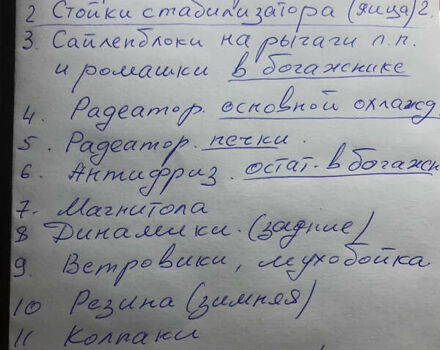 2 Стойки стабилизатора (яица) 2.
3. Сайленблоки на рычаги п.п.
и ромашки в богажнике
4. Радеатор. основной охлажд.
5. Радеатор. печки.
6. Антифриз. остат. в богажн
7. Магнитола
8 Динамики. (задние)
9. Ветровики, мухобойка
10 Резина (зимняя)
11 Колпаки